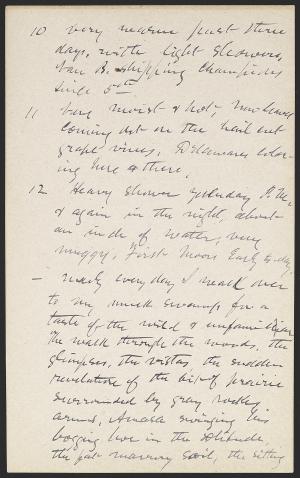 10 Very warm past three
days, with light showers,
Van B. shipping Champions
since 5th
11 Very moist & hot, new leaves
coming out on the hail cut
grape vines. Delawares color-
ing here & there,
12 Heavy shower yesterday P.M.
& again in the night, about
an inch of water, very
muggy. First Moors Early to-day.
— nearly every day I walk over
to my muck swamp for a
taste of the wild & unfamiliar
The walk through the woods, the
glimpses, the vistas, the sudden
revelation of the bit of prairie
surrounded by gray rocky
arms, Amasa swinging his
bogging hoe in the solitude,
the pure marrowy soil, the